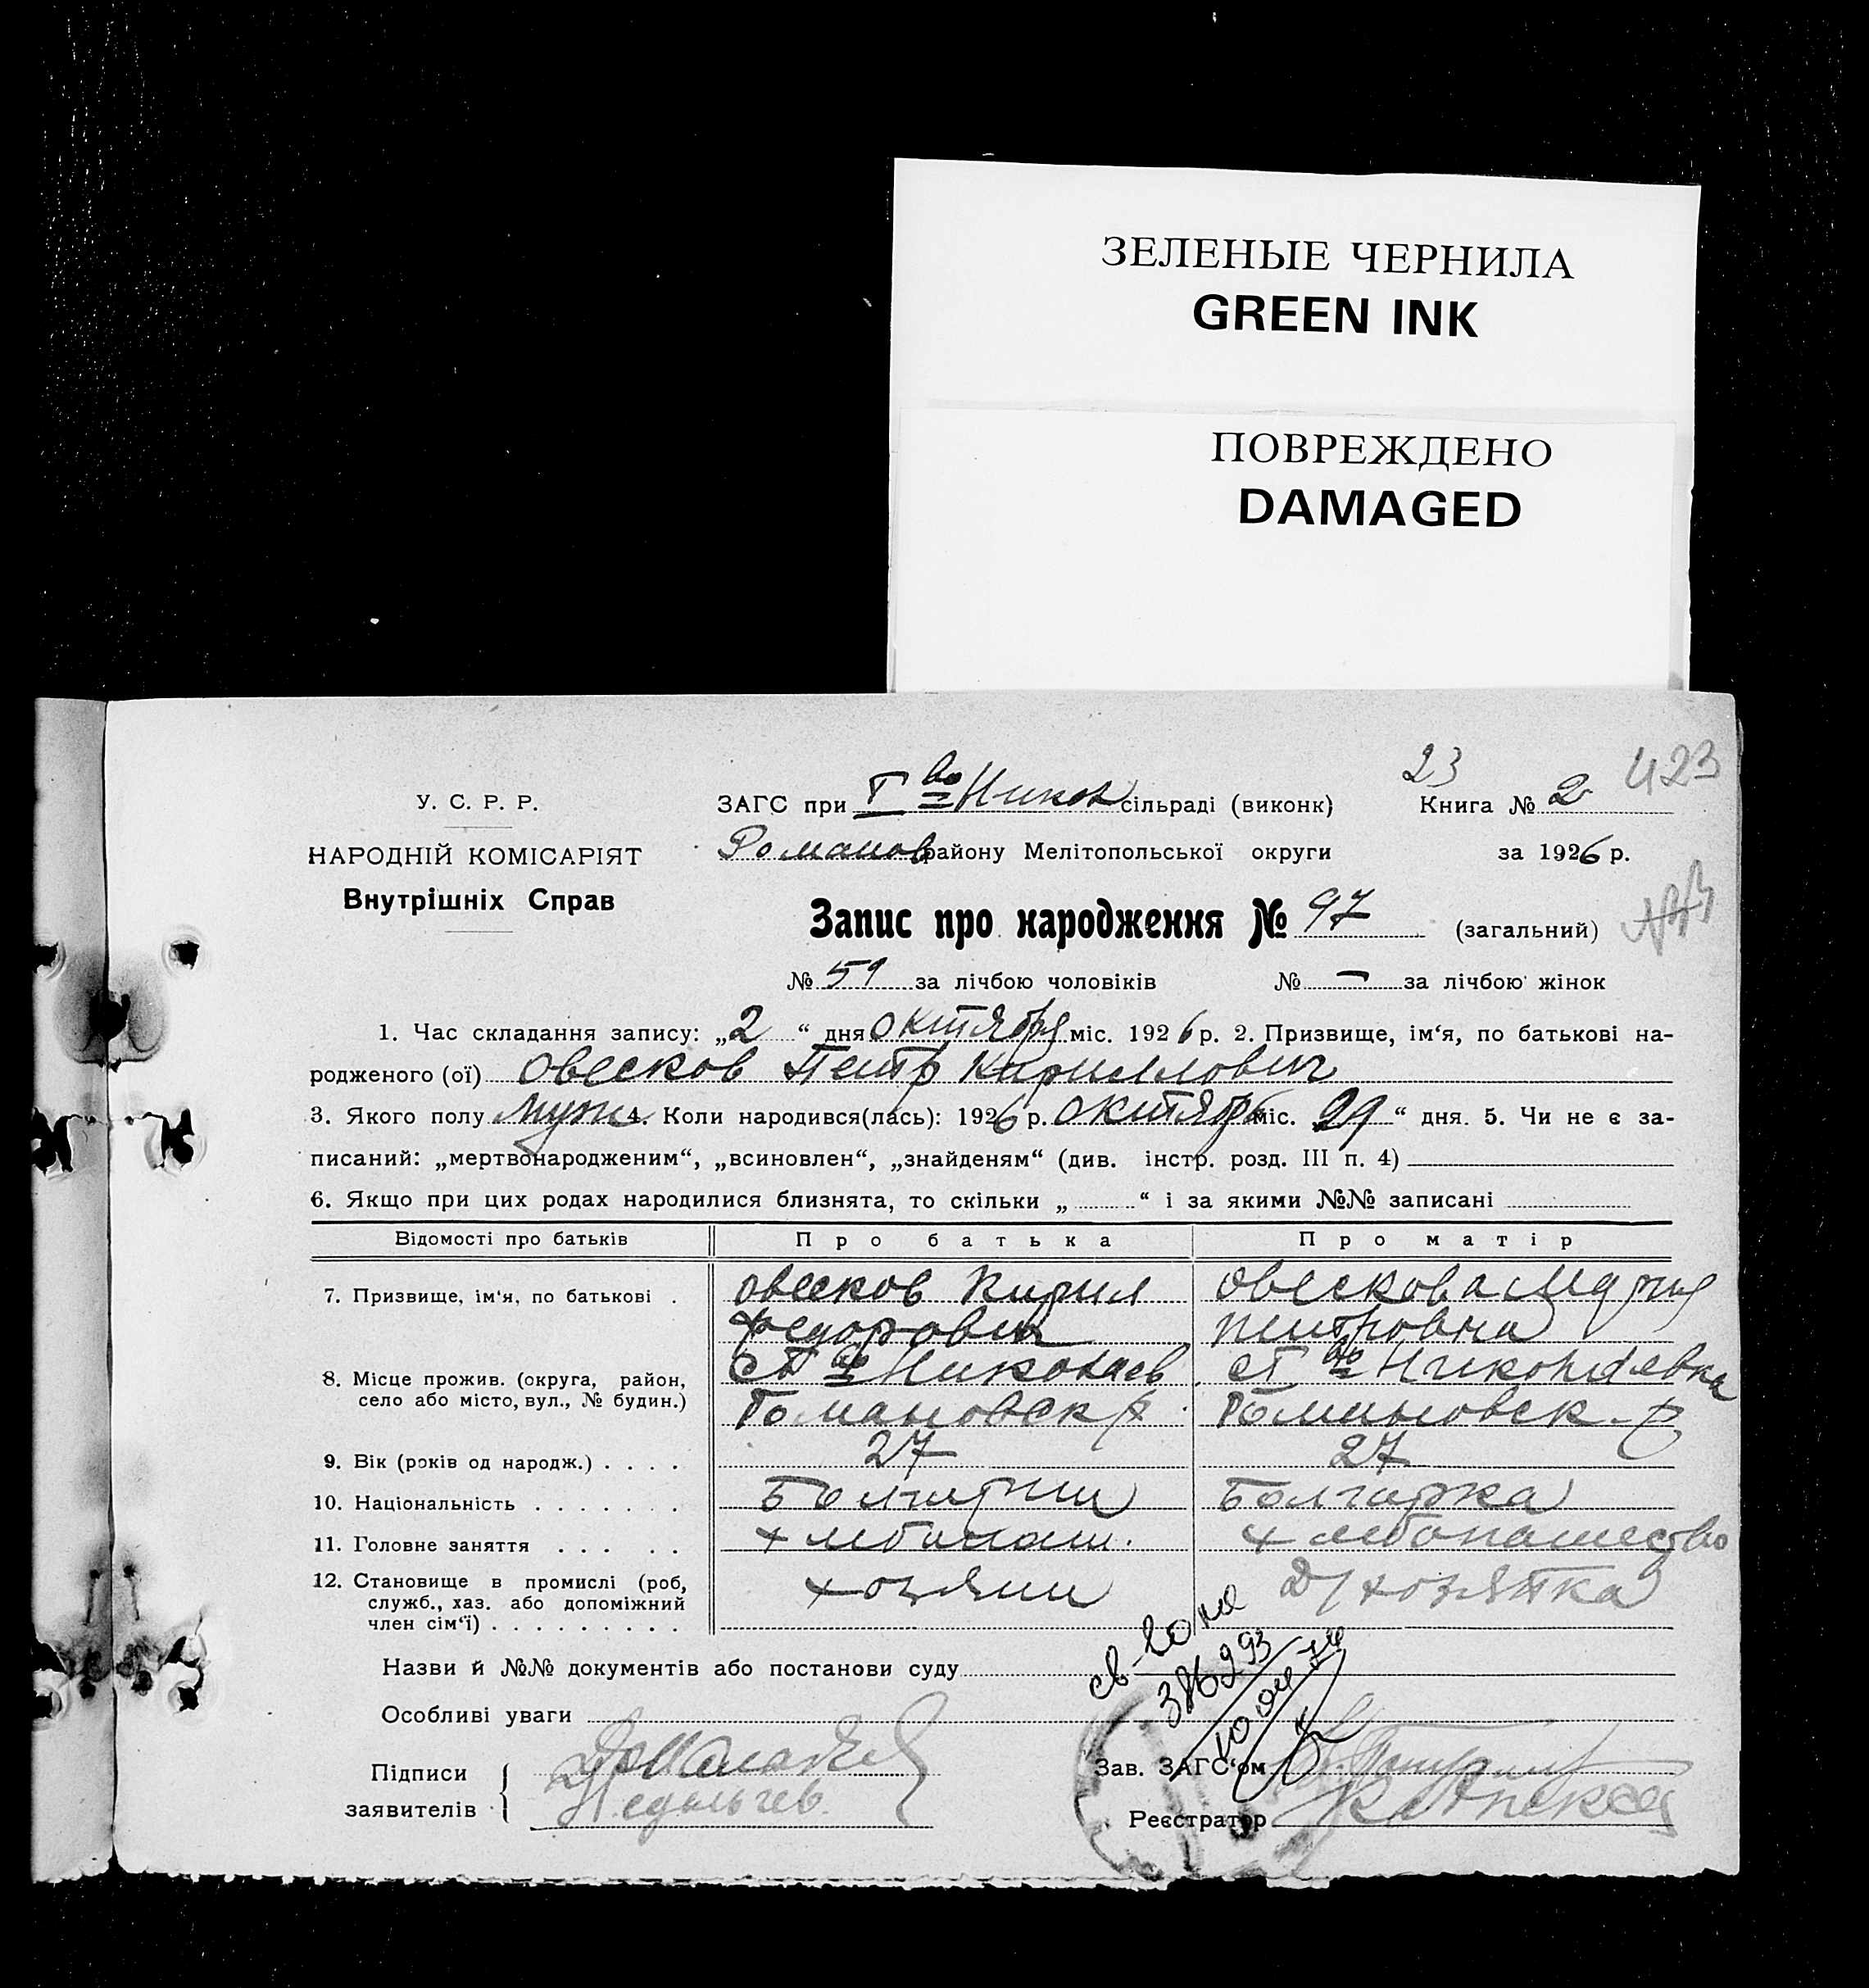 ЗЕЛЕНЫЕ ЧЕРНИЛА
GREEN INK
ПОВРЕЖДЕНО
DAMAGED
23 423
У. С. Р. Р.
ЗАГС при Т во Никол сільраді (виконк) Книга № 2
НАРОДНІЙ КОМІСАРІЯТ
Романов району Мелітопольської округи за 1926 р.
Внутрішніх Справ
Запис про народження № 97 (загальний)
№ 51 за лічбою чоловіків № — за лічбою жінок
1. Час складання запису: „2“ дня октября міс. 1926 р. 2. Призвище, ім‘я, по батькові на-
родженого (ої) Овесков Петр Кириллович
3. Якого полу муж 4. Коли народився(лась): 1926 р. октябрь міс. 29“ дня. 5. Чи не є за-
писаний: „мертвонародженим“, „всиновлен“, „знайденям“ (див. інстр. розд. III п. 4)
6. Якщо при цих родах народилися близнята, то скільки „ “ і за якими №№ записані
Відомості про батьків Про батька Про матір
7. Призвище, ім‘я, по батькові . Овесков Кирил Овескова Мария
Федорович Питровна
8. Місце прожив. (округа, район, Николаев Николаевка
село або місто, вул., № будин.) Романовск р Романовск. р
9. Вік (років од народж.) . . . . 27 27
10. Національність . . . . . . . Болгарин Болгарка
11. Головне заняття . . . . . хлебопаш. хлебопашество
12. Становище в промислі (роб, хозяин Д/хозятка
служб., хаз. або допоміжний
член сім‘ї) . . . . . . . . .
Назви й №№ документів або постанови суду
Особливі уваги
Підписи
заявителів
Зав. ЗАГС‘ом
Реєстратор